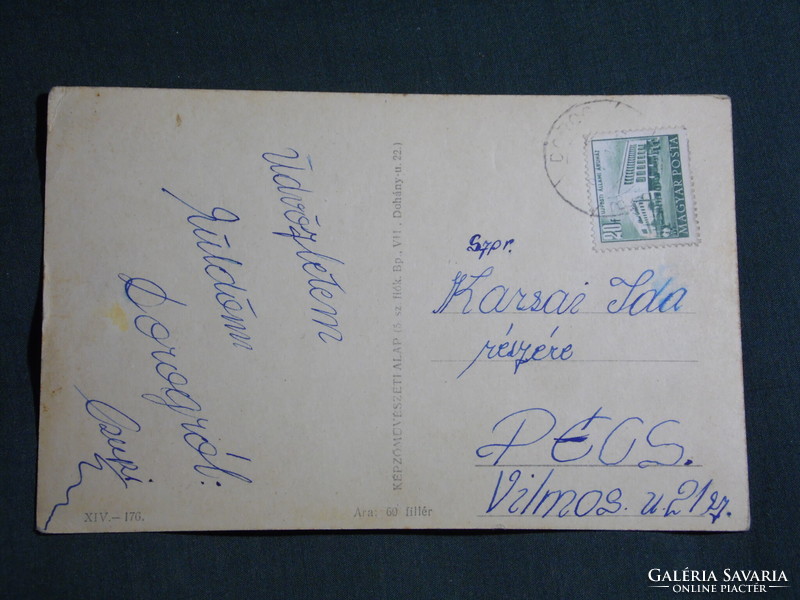 Üdvözletem
Küldöm
Dorogról:
Csupi
XIV.—176.
Ára: 60 fillér
KÉPZŐMŰVÉSZETI ALAP (5. sz. fiók. Bp., VII., Dohány-u. 22.)
DOROG
20f
MAGYAR POSTA
Szpr.
Karsai Ida
részére
PÉCS.
Vilmos. u. 21 sz.
GALÉRIA SAVARIA
ONLINE PIACTÉR